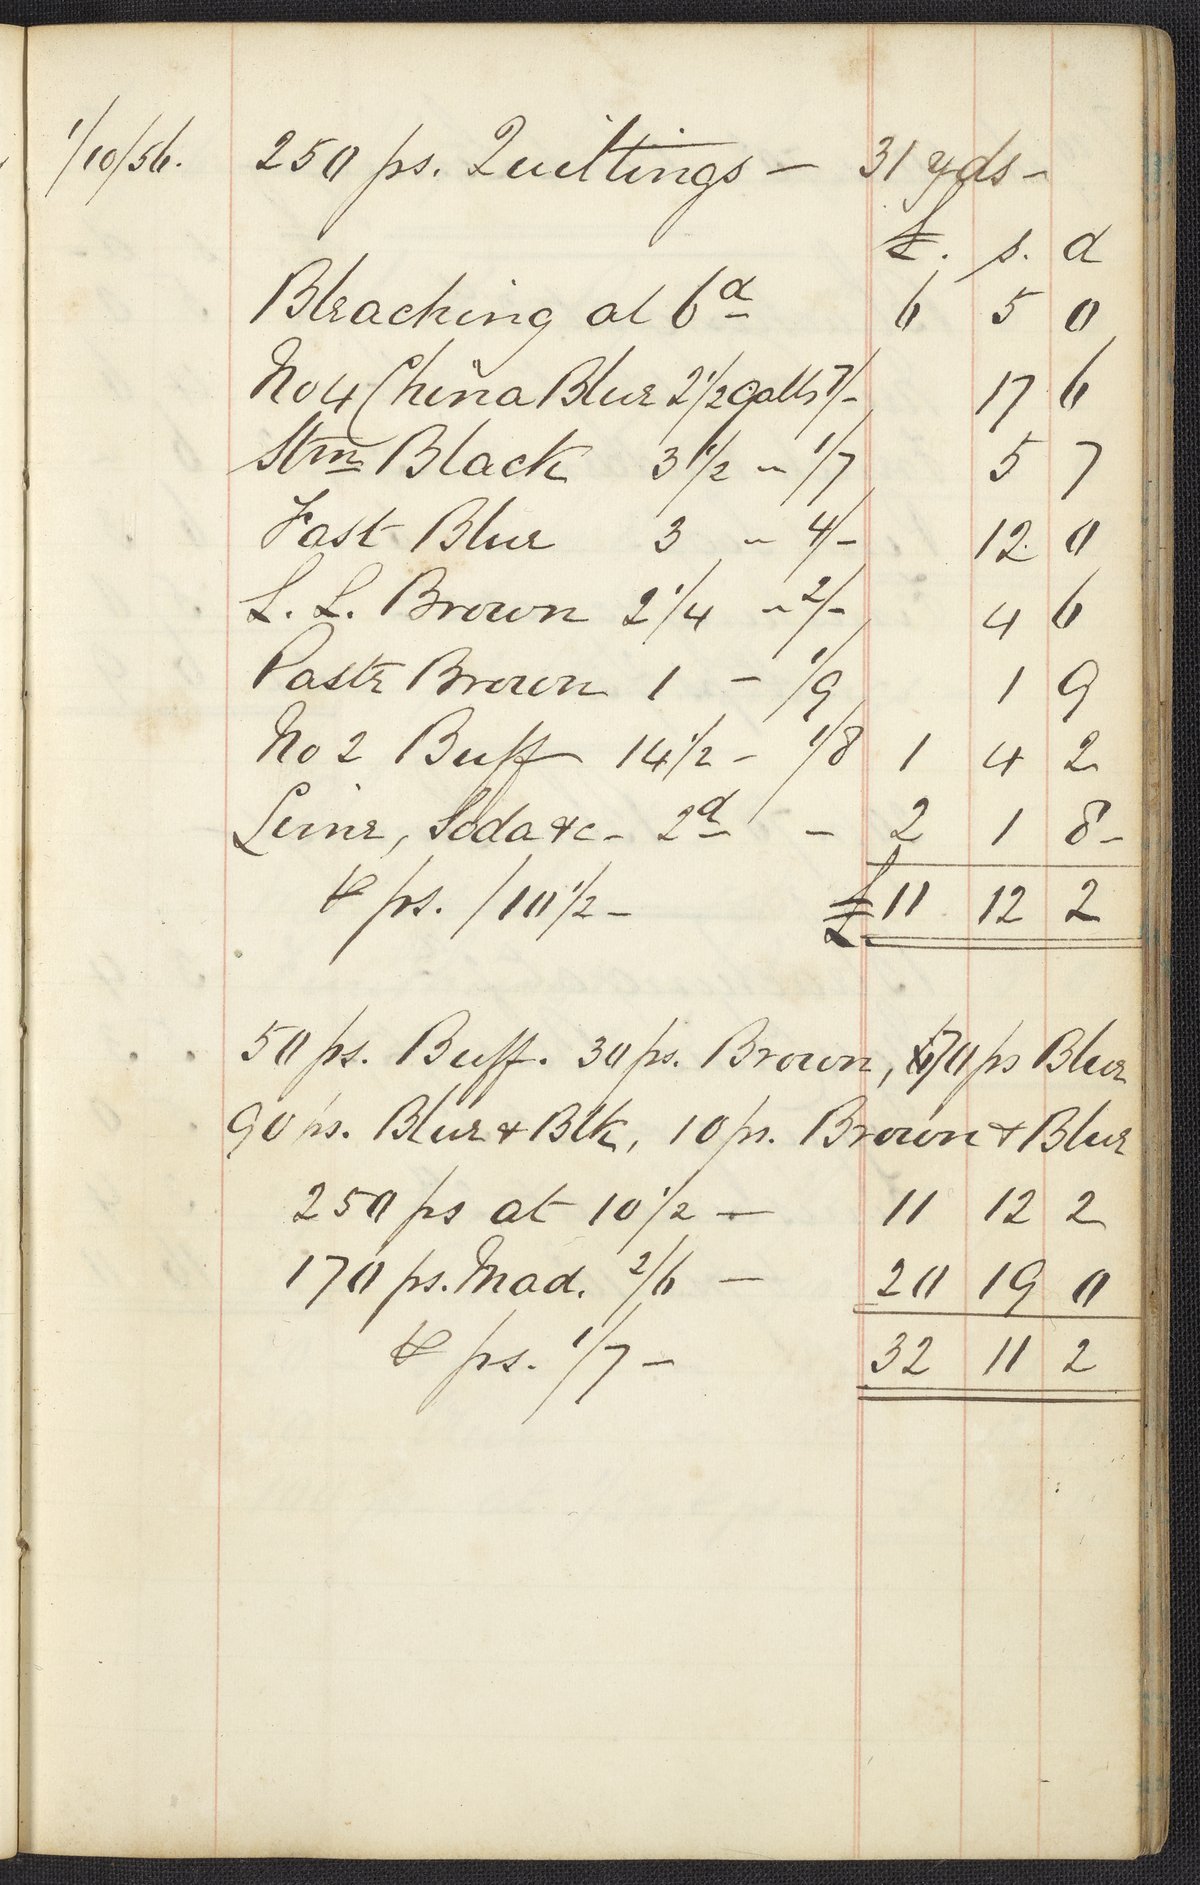 1/10/56. 250 ps. Quiltings – 31 yds –
£. s. d
Bleaching at 6d 6 5 0
No 4 China Blue 2 1/2 Galls 7/- 17 6
Stm Black 3 1/2 " 1/7 5 7
Fast Blue 3 " 4/- 12 0
L. L. Brown 2 1/4 " 2/- 4 6
Paste Brown 1 – 1/9 1 9
No 2 Buff 14 1/2 – 1/8 1 4 2
Lime, Soda &c – 2d – 2 1 8 –
₱ ps. /10 1/2 – £ 11 12 2
50 ps. Buff. 30 ps. Brown, 70 ps Blue
90 ps. Blue & Blk, 10 ps. Brown & Blue
250 ps at 10 1/2 – 11 12 2
170 ps. Mad. 2/6 – 20 19 0
₱ ps. 1/7 – 32 11 2